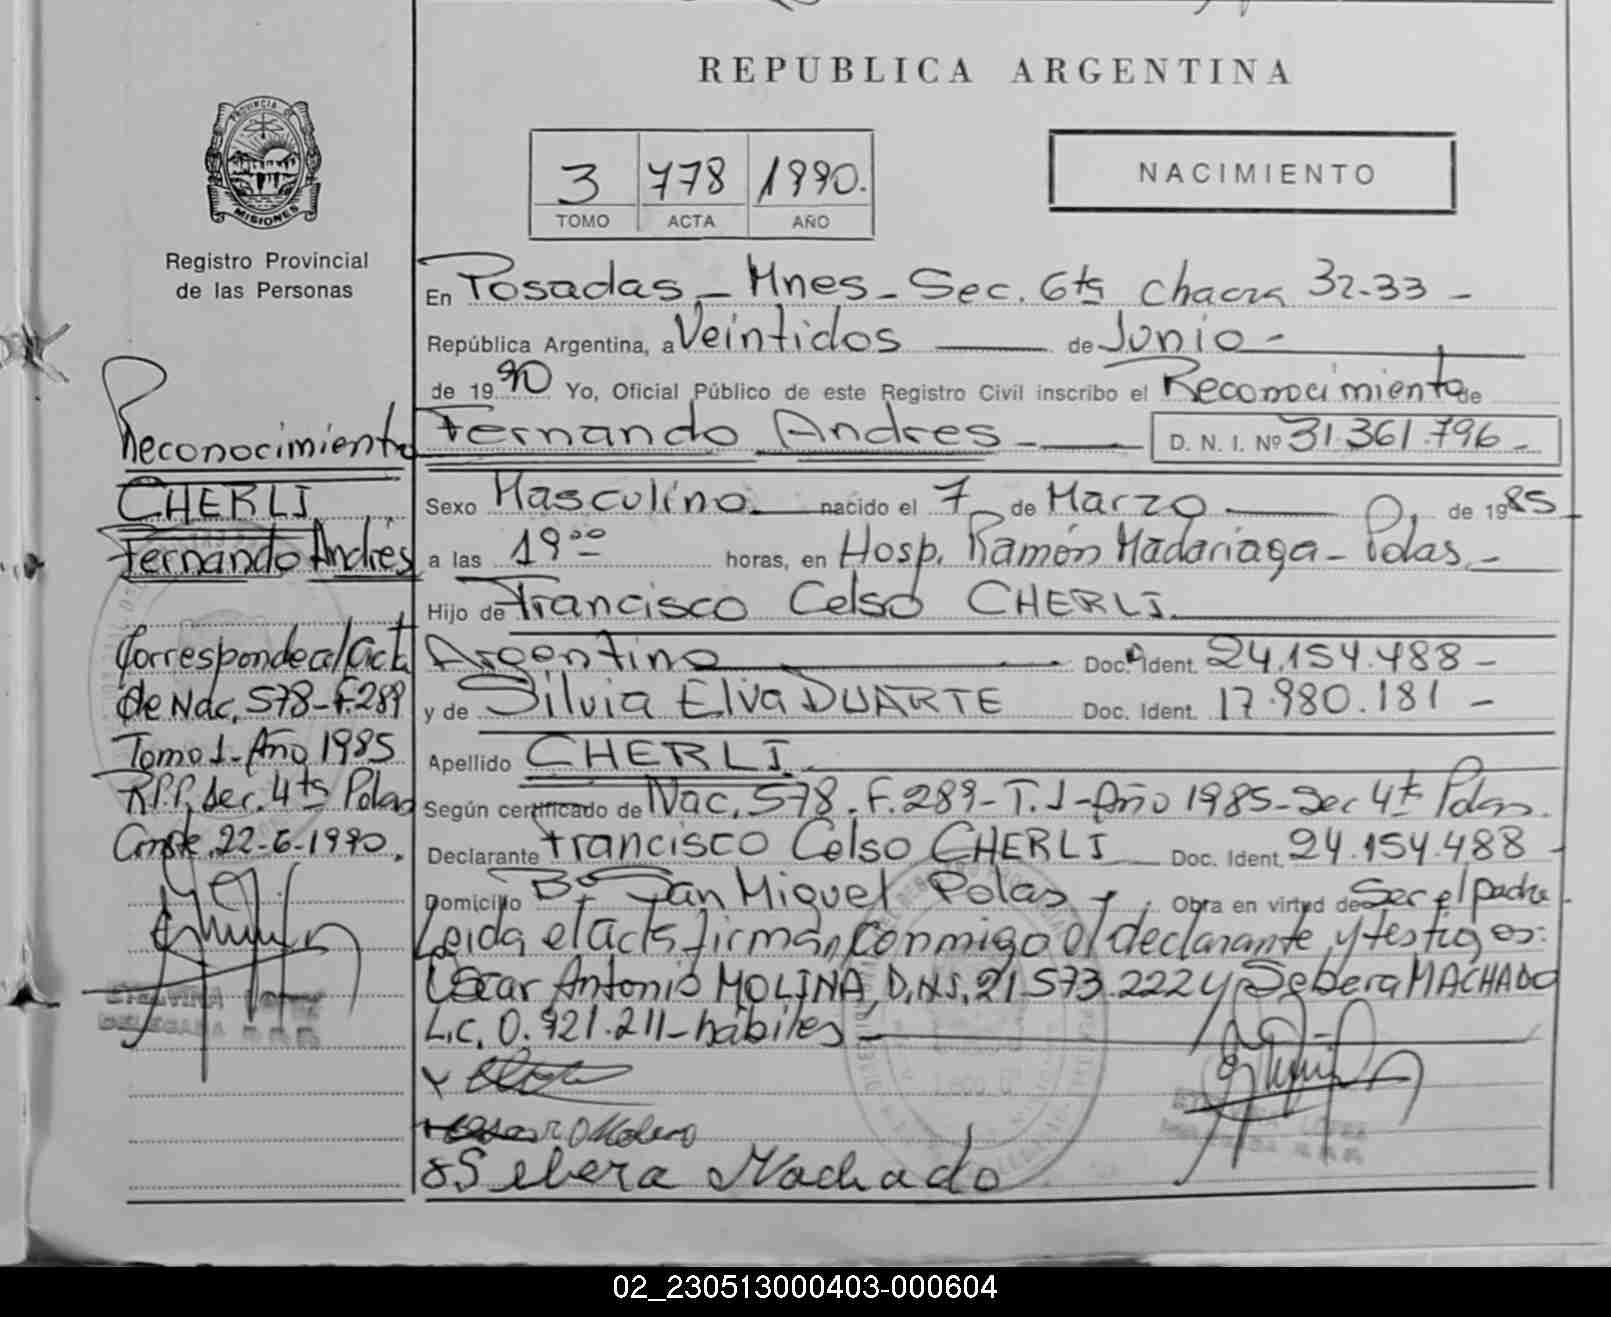 REPUBLICA ARGENTINA
PROVINCIA DE
MISIONES
Registro Provincial
de las Personas
3 778 1990.
TOMO ACTA AÑO
NACIMIENTO
En Posadas - Mnes - Sec. 6ta chacra 32-33 -
República Argentina, a Veintidos de Junio -
de 1990 Yo, Oficial Público de este Registro Civil inscribo el Reconocimiento de
Fernando Andres - D. N. I. Nº 31.361.796 -
Sexo Masculino nacido el 7 de Marzo de 1985
a las 19 00 horas, en Hosp. Ramón Madariaga - Pdas. -
Hijo de Francisco Celso CHERLI
Argentino Doc. Ident. 24.154.488 -
y de Silvia Elva DUARTE Doc. Ident. 17.980.181 -
Apellido CHERLI
Según certificado de Nac. 578. F. 289 - T. 1 - Año 1985 - Sec 4ta Pdas.
Declarante Francisco Celso CHERLI Doc. Ident. 24.154.488 -
Domicilio Bº San Miguel Pdas Obra en virtud de Ser el padre
Leida el acta firman conmigo el declarante y testigos:
Oscar Antonio MOLINA, D.N.I. 21.573.222 y Sebera MACHADO
L.C. 0.921.211 - hábiles
Sebera Machado
Reconocimiento
CHERLI
Fernando Andres
Corresponde al Acta
de Nac. 578 - F. 289
Tomo 1 - Año 1985
R.P.P. Sec. 4ta Pdas
Conste 22-6-1990.
ETELVINA LOPEZ
DELEGADA
02_230513000403-000604